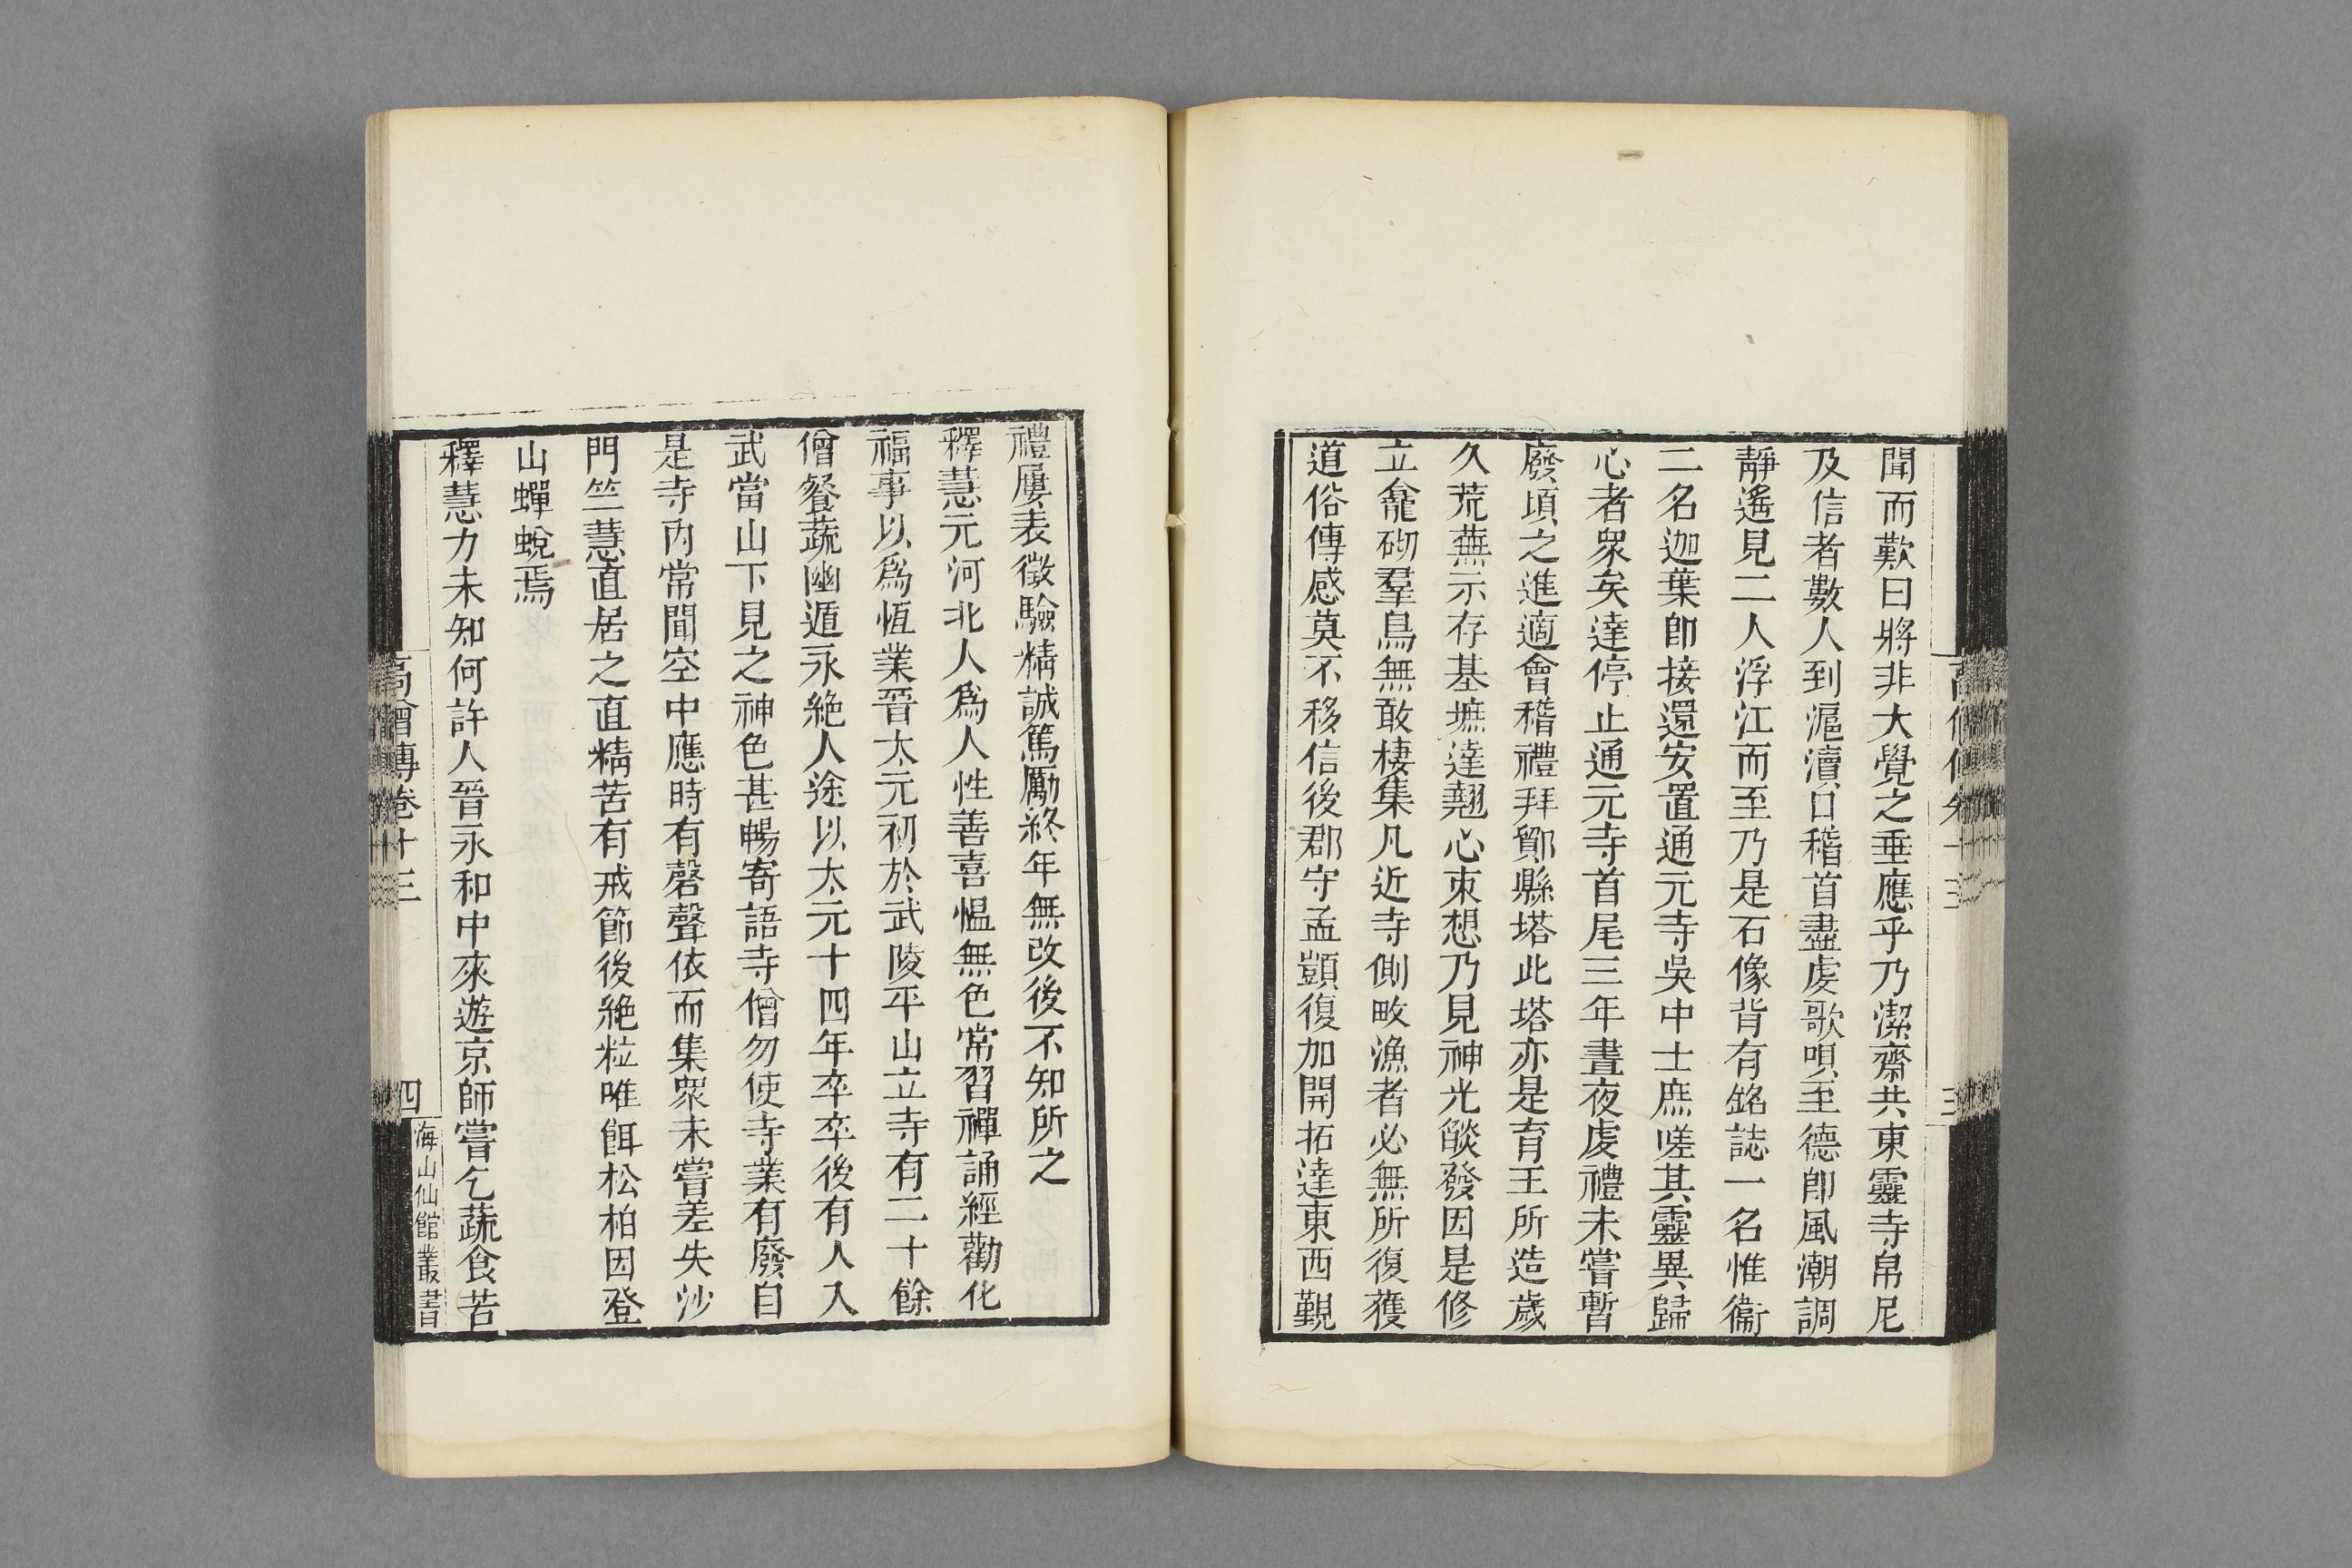 聞而歎曰將非大覺之垂應乎乃潔齋共東靈寺帛尼
及信者數人到滬瀆口稽首盡虔歌唄至德卽風潮調
靜遙見二人浮江而至乃是石像背有銘誌一名惟衞
二名迦葉卽接還安置通元寺吳中士庶嗟其靈異歸
心者衆矣達停止通元寺首尾三年晝夜虔禮未嘗暫
廢頃之進適會稽禮拜鄮縣塔此塔亦是育王所造歲
久荒蕪示存基墌達翹心束想乃見神光燄發因是修
立龕砌羣鳥無敢棲集凡近寺側畋漁者必無所復獲
道俗傳感莫不移信後郡守孟顗復加開拓達東西覲
禮屢表徵驗精誠篤勵終年無改後不知所之
釋慧元河北人爲人性善喜慍無色常習禪誦經勸化
福事以爲恆業晉太元初於武陵平山立寺有二十餘
僧餐蔬幽遁永絶人途以太元十四年卒卒後有人入
武當山下見之神色甚暢寄語寺僧勿使寺業有廢自
是寺內常聞空中應時有磬聲依而集衆未嘗差失沙
門竺慧直居之直精苦有戒節後絶粒唯餌松柏因登
山蟬蛻焉
釋慧力未知何許人晉永和中來遊京師嘗乞蔬食苦
高僧傳卷十三
四
海山仙館叢書